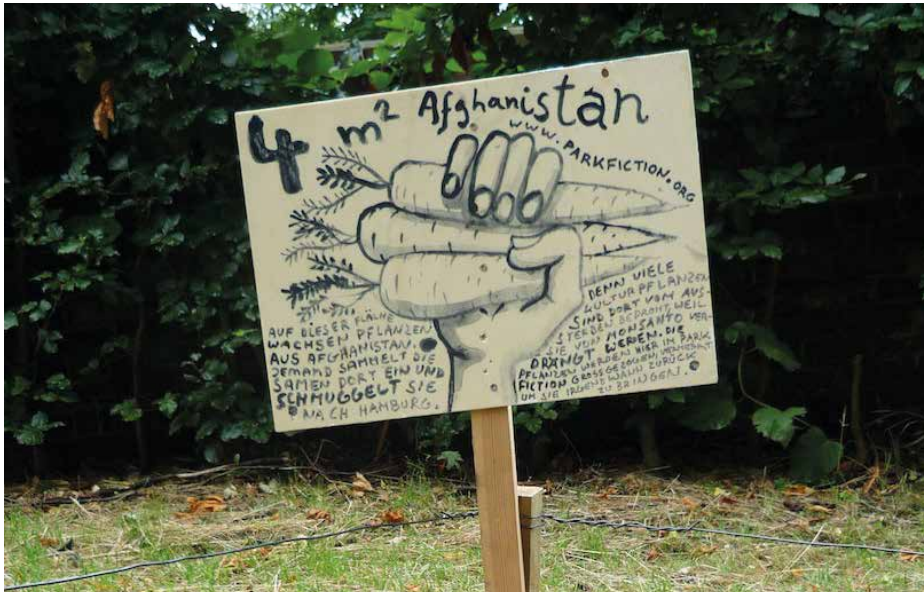 4 m² Afghanistan
WWW.PARKFICTION.ORG
AUF DIESER FLÄHE
WACHSEN PFLANZEN
AUS AFGHANISTAN.
JEMAND SAMMELT DIE
SAMEN DORT EIN UND
SCHMUGGELT SIE
NACH HAMBURG.
DENN VIELE
KULTURPFLANZEN
SIND DORT VOM AUS-
STERBEN BEDROHT WEIL
SIE VON MONSANTO VER-
DRÄNGT WERDEN. DIE
PFLANZEN WERDEN HIER IM PARK
FICTION GROSSGEZOGEN, VERMEHRT
UM SIE IRGENDWANN ZURÜCK
ZU BRINGEN.